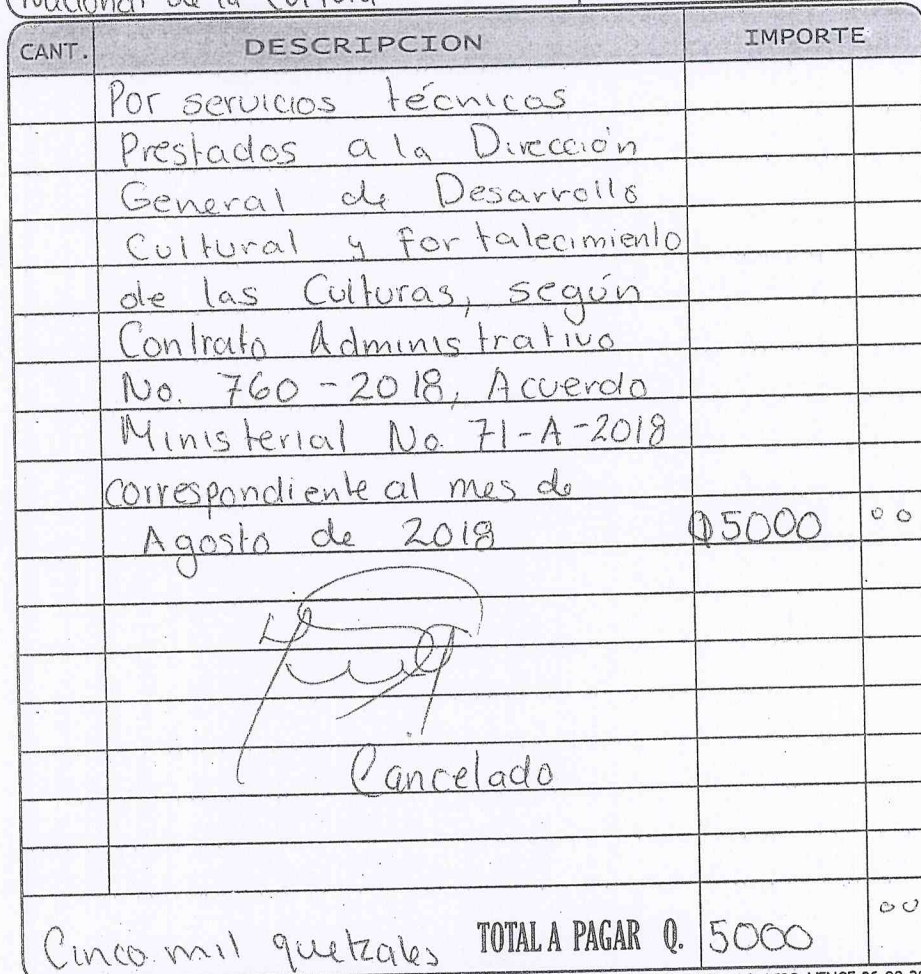 Nacional de la Cultura
CANT. DESCRIPCION IMPORTE
Por servicios técnicos
Prestados a la Dirección
General de Desarrollo
Cultural y fortalecimiento
de las Culturas, según
Contrato Administrativo
No. 760-2018, Acuerdo
Ministerial No. 71-A-2018
correspondiente al mes de
Agosto de 2018 Q5000 00
Cancelado
Cinco mil quetzales TOTAL A PAGAR Q. 5000 00